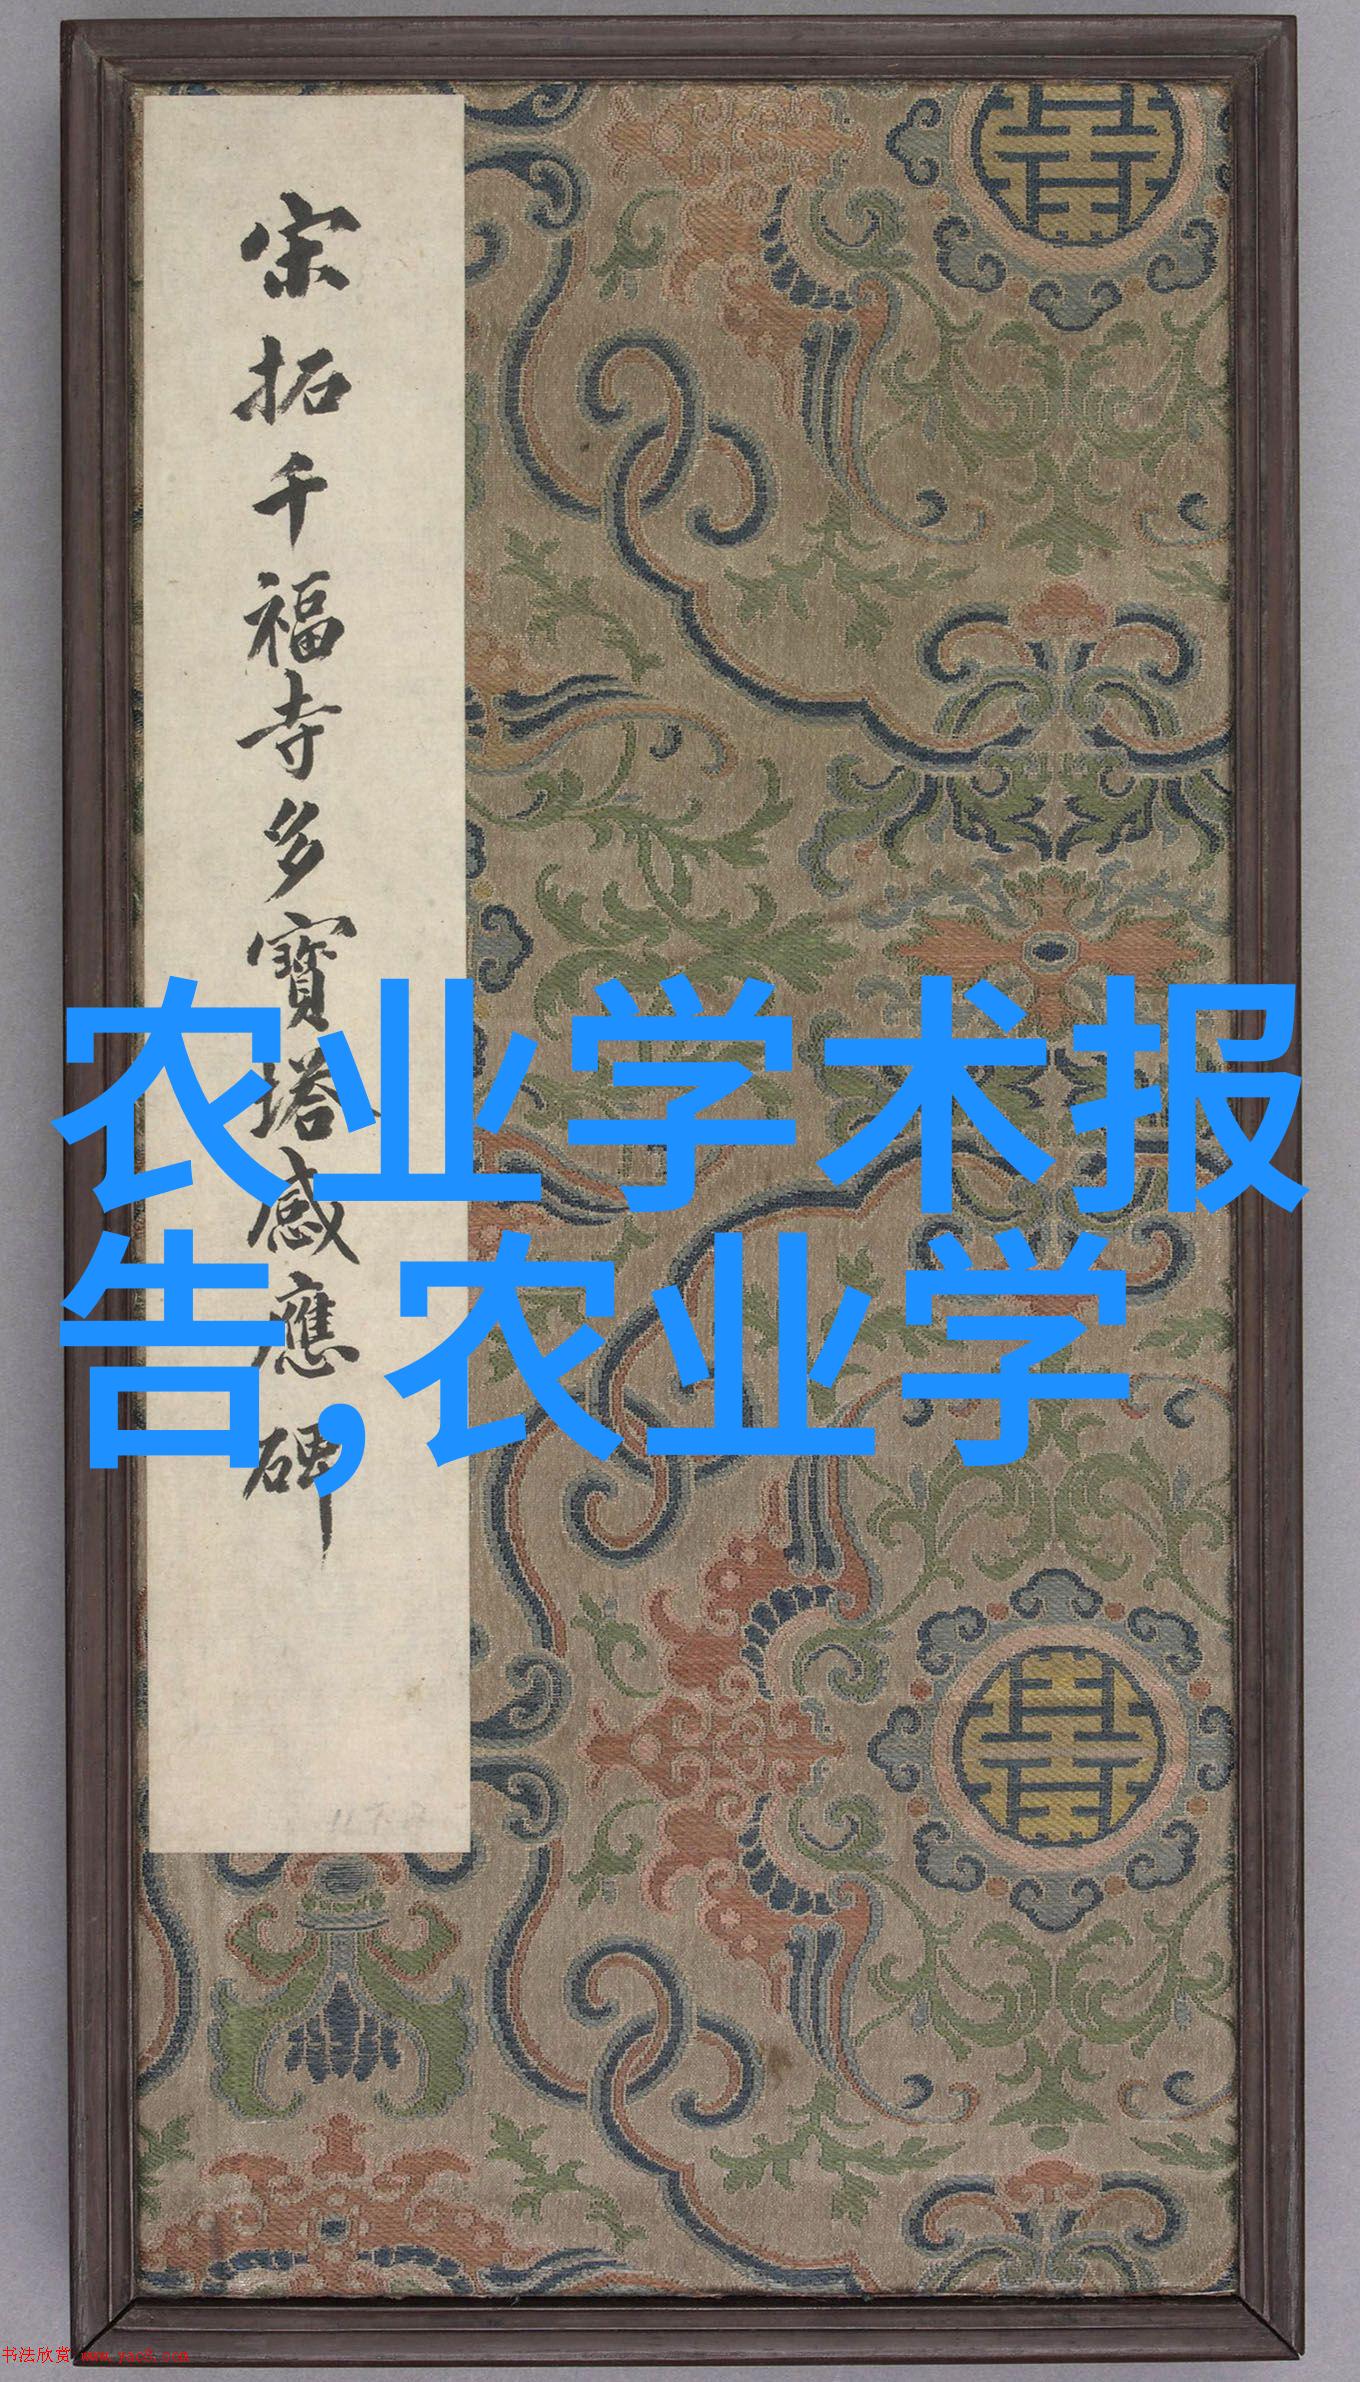 宋拓千福寺多寶塔感應碑
农业学术报
告,农业学
书法欣赏 www.yac8.com